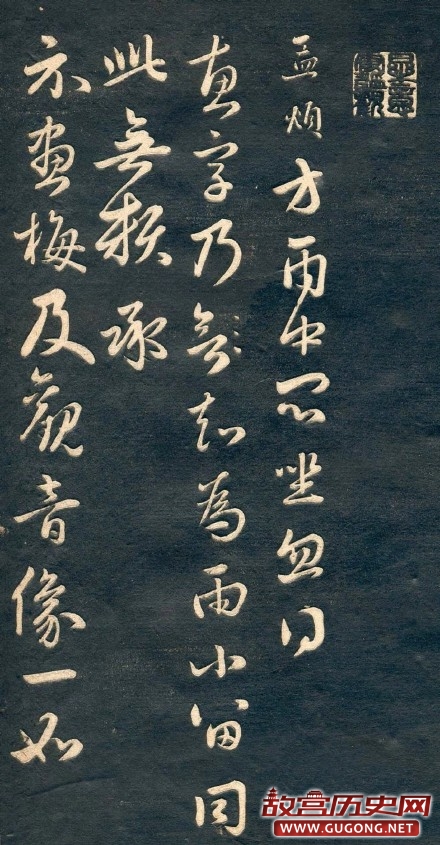 孟頫方雨中悶坐忽得
惠字乃無知為雨小留同
此無聊承
示畫梅及觀音像一如
故宫历史网
WWW.GUGONG.NET